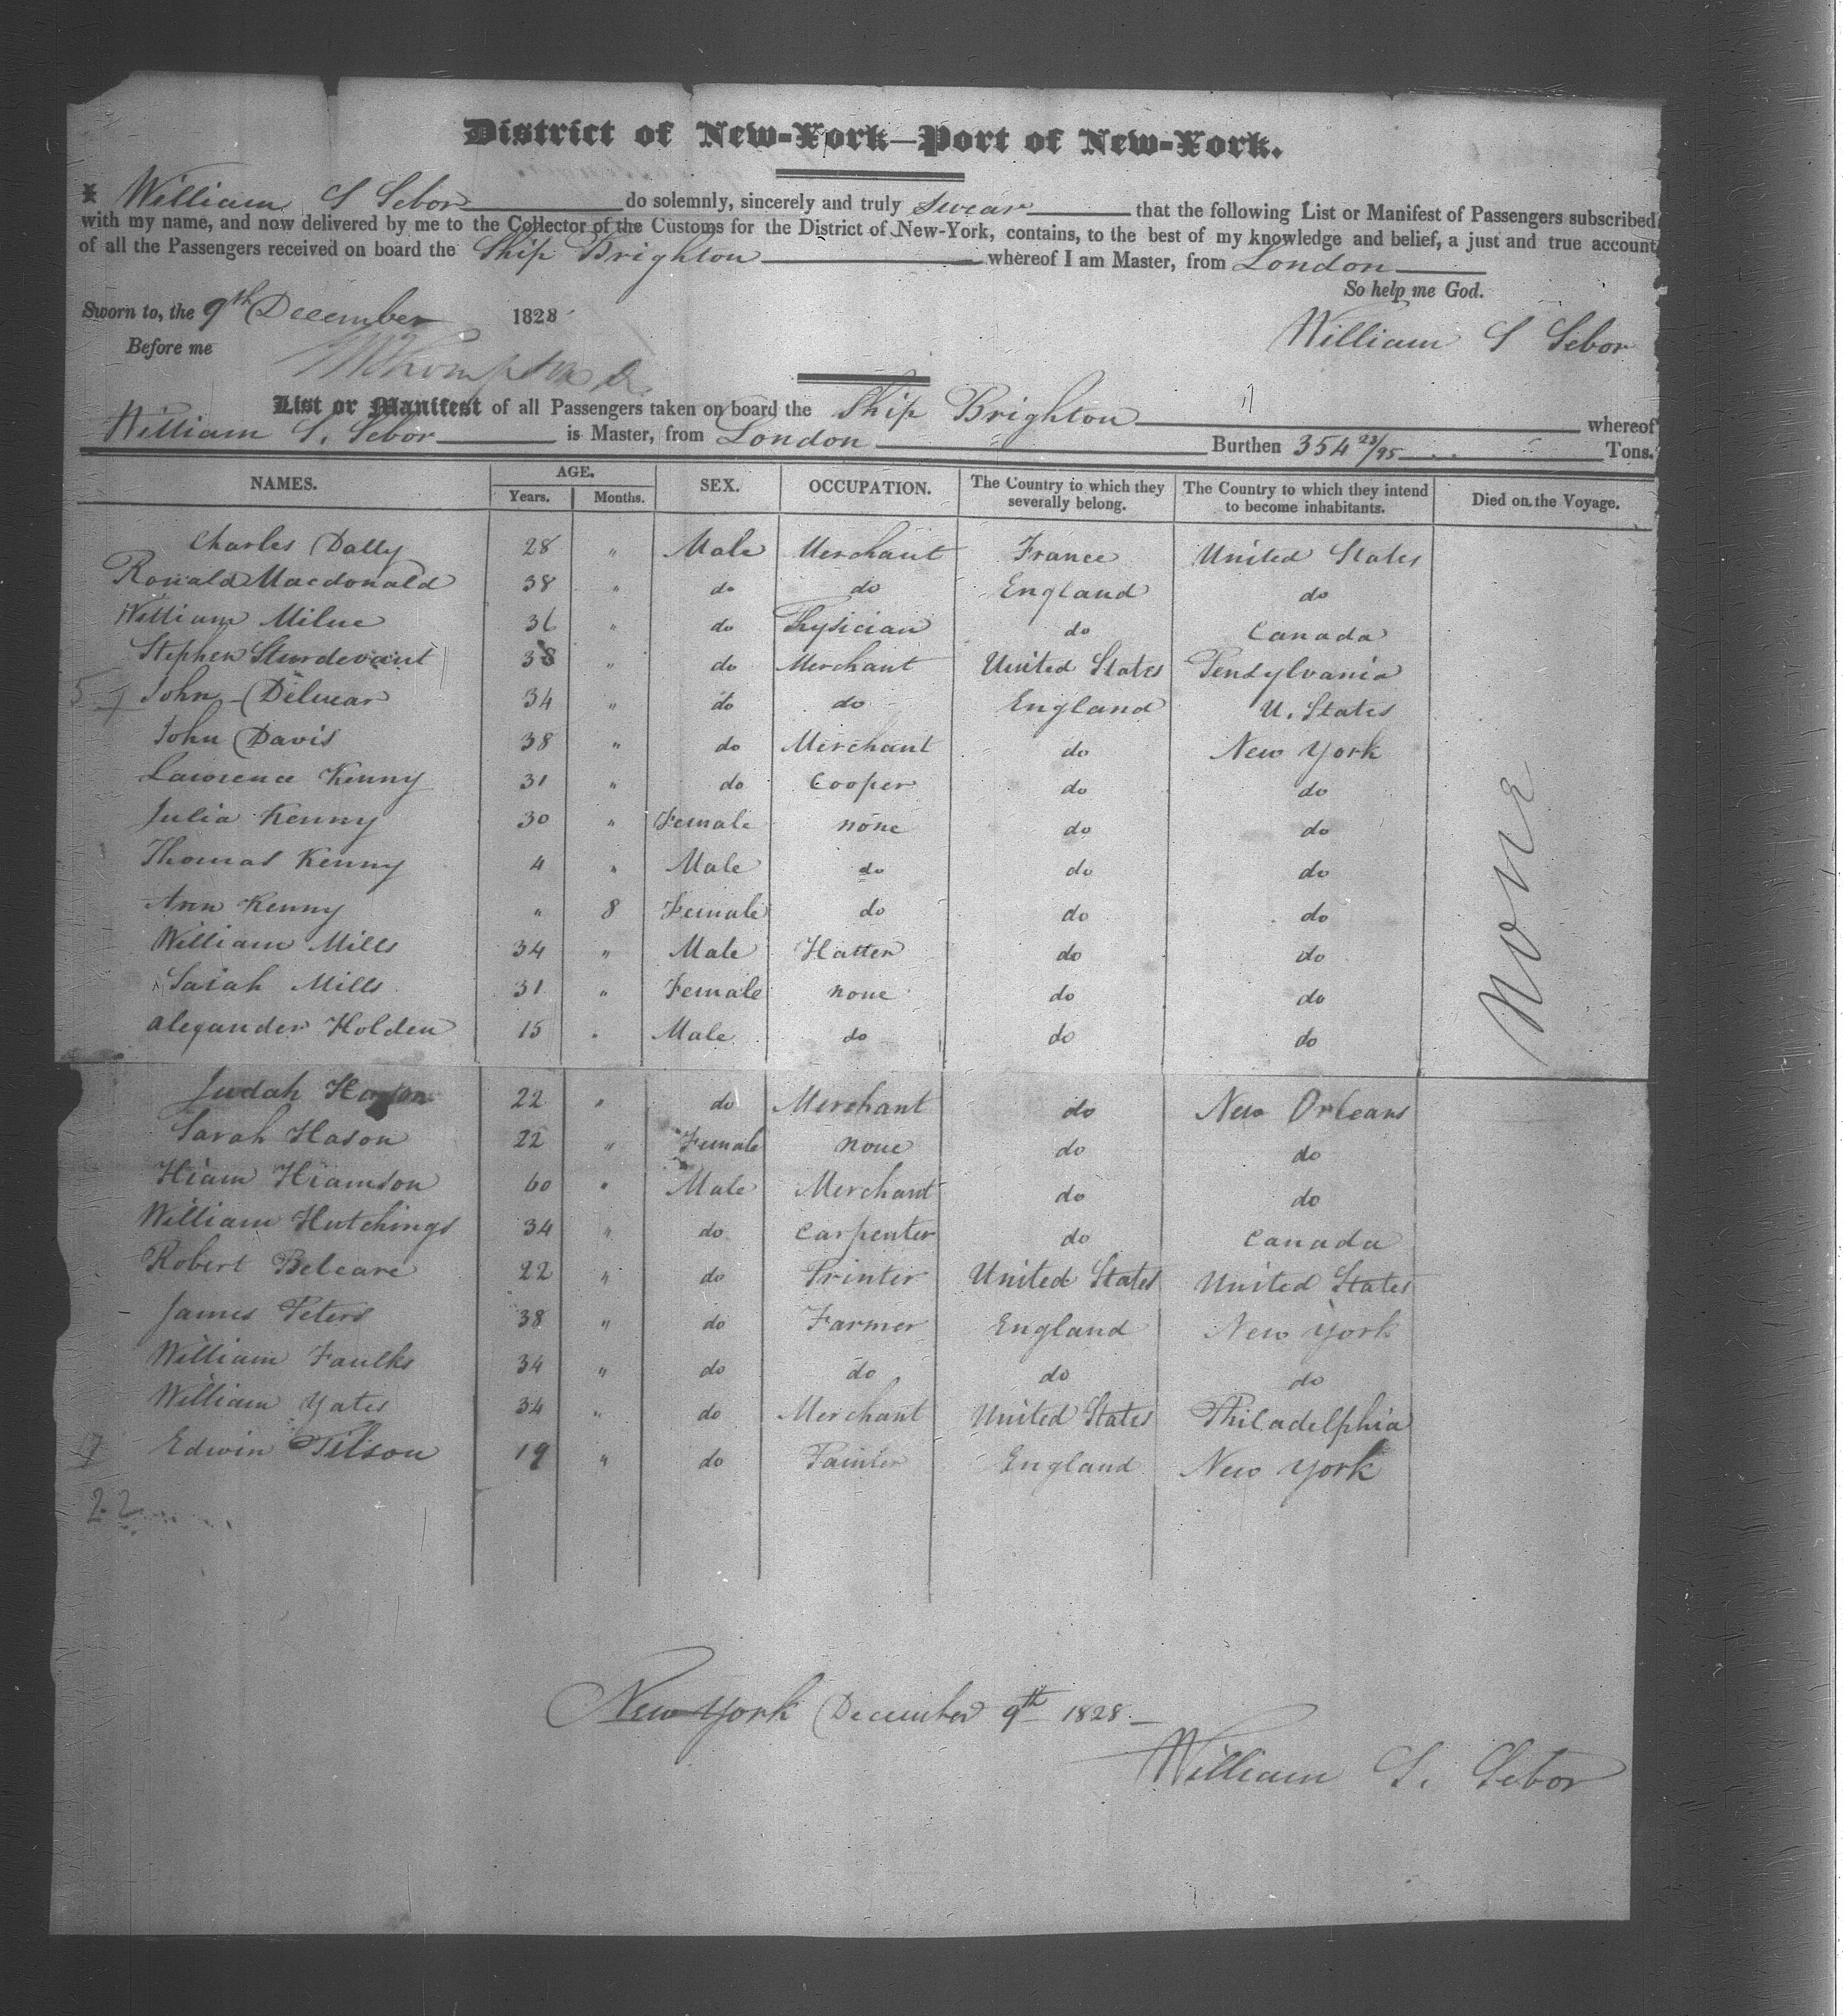 District of New-York—Port of New-York.
I William S Sebor do solemnly, sincerely and truly swear that the following List or Manifest of Passengers subscribed
with my name, and now delivered by me to the Collector of the Customs for the District of New-York, contains, to the best of my knowledge and belief, a just and true account
of all the Passengers received on board the Ship Brighton whereof I am Master, from London
So help me God.
Sworn to, the 9th December 1828
William S Sebor
Before me
List or Manifest of all Passengers taken on board the Ship Brighton whereof
William S. Sebor is Master, from London Burthen 354 23/95 Tons.
NAMES. AGE. Years. Months. SEX. OCCUPATION. The Country to which they severally belong. The Country to which they intend to become inhabitants. Died on the Voyage.
Charles Dally 28 " Male Merchant France United States
Ronald Macdonald 38 " do do England do
William Milne 36 " do Physician do Canada
Stephen Sturdevant 38 " do Merchant United States Pendylvania
John Dilwar 34 " do do England U. States
John Davis 38 " do Merchant do New York
Lawrence Kenny 31 " do Cooper do do
Julia Kenny 30 " Female none do do
Thomas Kenny 4 " Male do do do
Ann Kenny " 8 Female do do do
William Mills 34 " Male Hatter do do
Sarah Mills 31 " Female none do do
Alexander Holden 15 " Male do do do
None
Judah 22 " do Merchant do New Orleans
Sarah Hason 22 " Female none do do
Hiam Hiamson 60 " Male Merchant do do
William Hutchings 34 " do Carpenter do Canada
Robert Beleare 22 " do Printer United States United States
James Peters 38 " do Farmer England New York
William Faulks 34 " do do do do
William Yates 34 " do Merchant United States Philadelphia
Edwin Tilson 19 " do Painter England New York
22
New York December 9th 1828
William S. Sebor